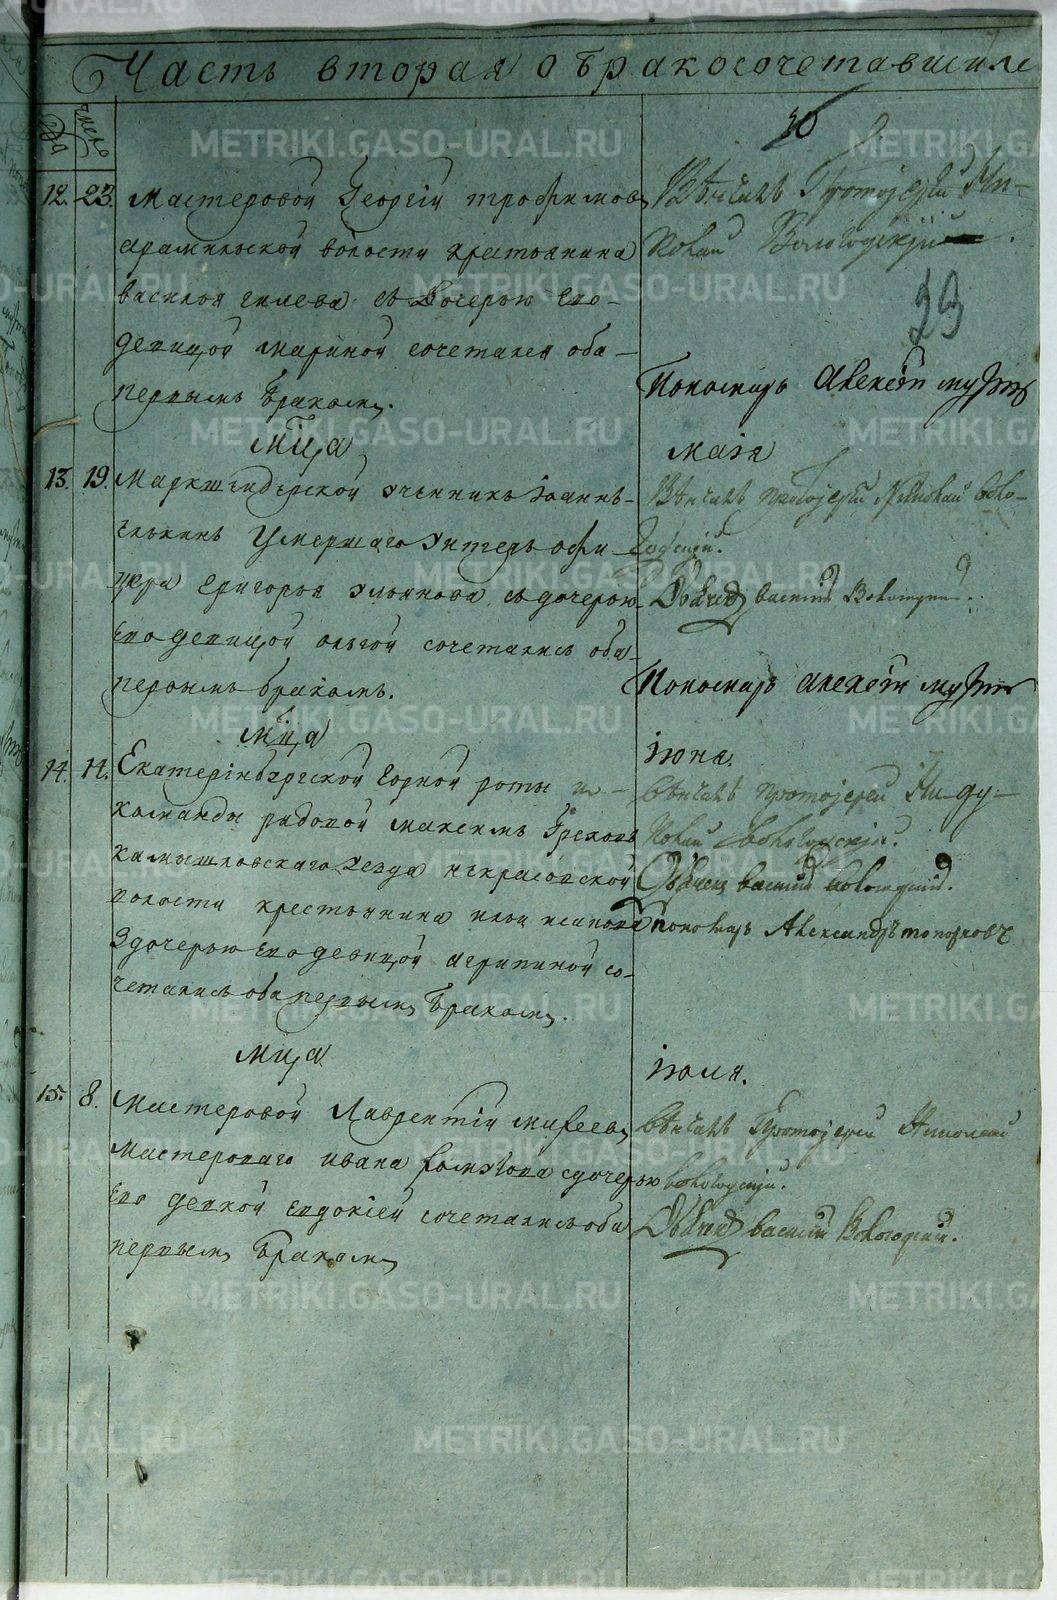 Часть вторая о бракосочетавшихся
числo
30
23
12. 23. Мастеровой Георгiй трофимовъ
арамильской волости крестьянина
василья гилева съ дочерью ево
девицой мариной сочетался оба
первымъ бракомъ.
Венчалъ Протоjерей Ни-
колай Вологодскjй
Пономарь Алексей
мца маiя
13. 19. Маркшейдерской ученикъ Iоаннъ
умершаго унтеръ офи
цера григорья ульянова съ дочерью
ево девицой ольгой сочетались оба
первымъ бракомъ.
Венчалъ протоjерей Николай воло-
годскjй.
Дьячекъ василий Вологодский.
Пономарь алексей
мца iюня.
14. 11. Екатерiнбургской горной роты
команды рядовой максимъ Греховъ
камышловскаго уезда некрасовской
волости крестьянина ильи
здочерью ево девицой агрипиной со-
четались оба первымъ бракомъ.
венчалъ протоjерей Ни-
колай вологодскjй.
Дьячекъ василий вологодский.
пономарь Александръ топорковъ
мца iюля.
15. 8. Мастеровой Лаврентiй михеевъ
мастероваго ивана здочерью
ево девкой евдокiей сочетались оба
первымъ бракомъ
венчалъ Протоjерей Николай
вологодскjй.
Дьячекъ василий Вологодский.
METRIKI.GASO-URAL.RU